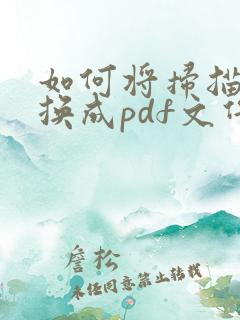 如何将扫描
换成pdf文
詹松
未经同意禁止转载